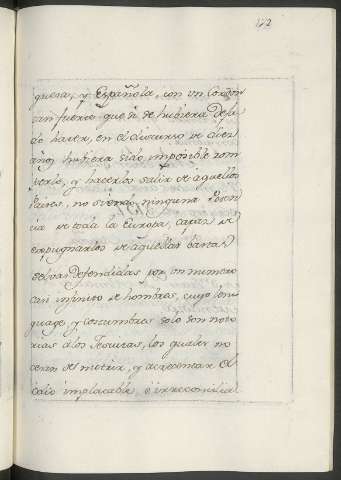 172
guesa, y Española, con un Cordon
tan fuerte que si se hubiera deja
do hacer, en el discurso de diez
años hubiera sido imposible rom
perlo, y hacerlos salir de aquellos
Paises, no siendo ninguna Poten
cia de toda la Europa, capaz de
expugnarlos de aquellas bastas
selvas defendidas por un numero
casi infinito de hombres, cuyo len
guage, y costumbres solo son noto
rias a los Jesuitas, los quales no
cesan de meterir, y acrecentar el
odio implacable, è irreconcilia